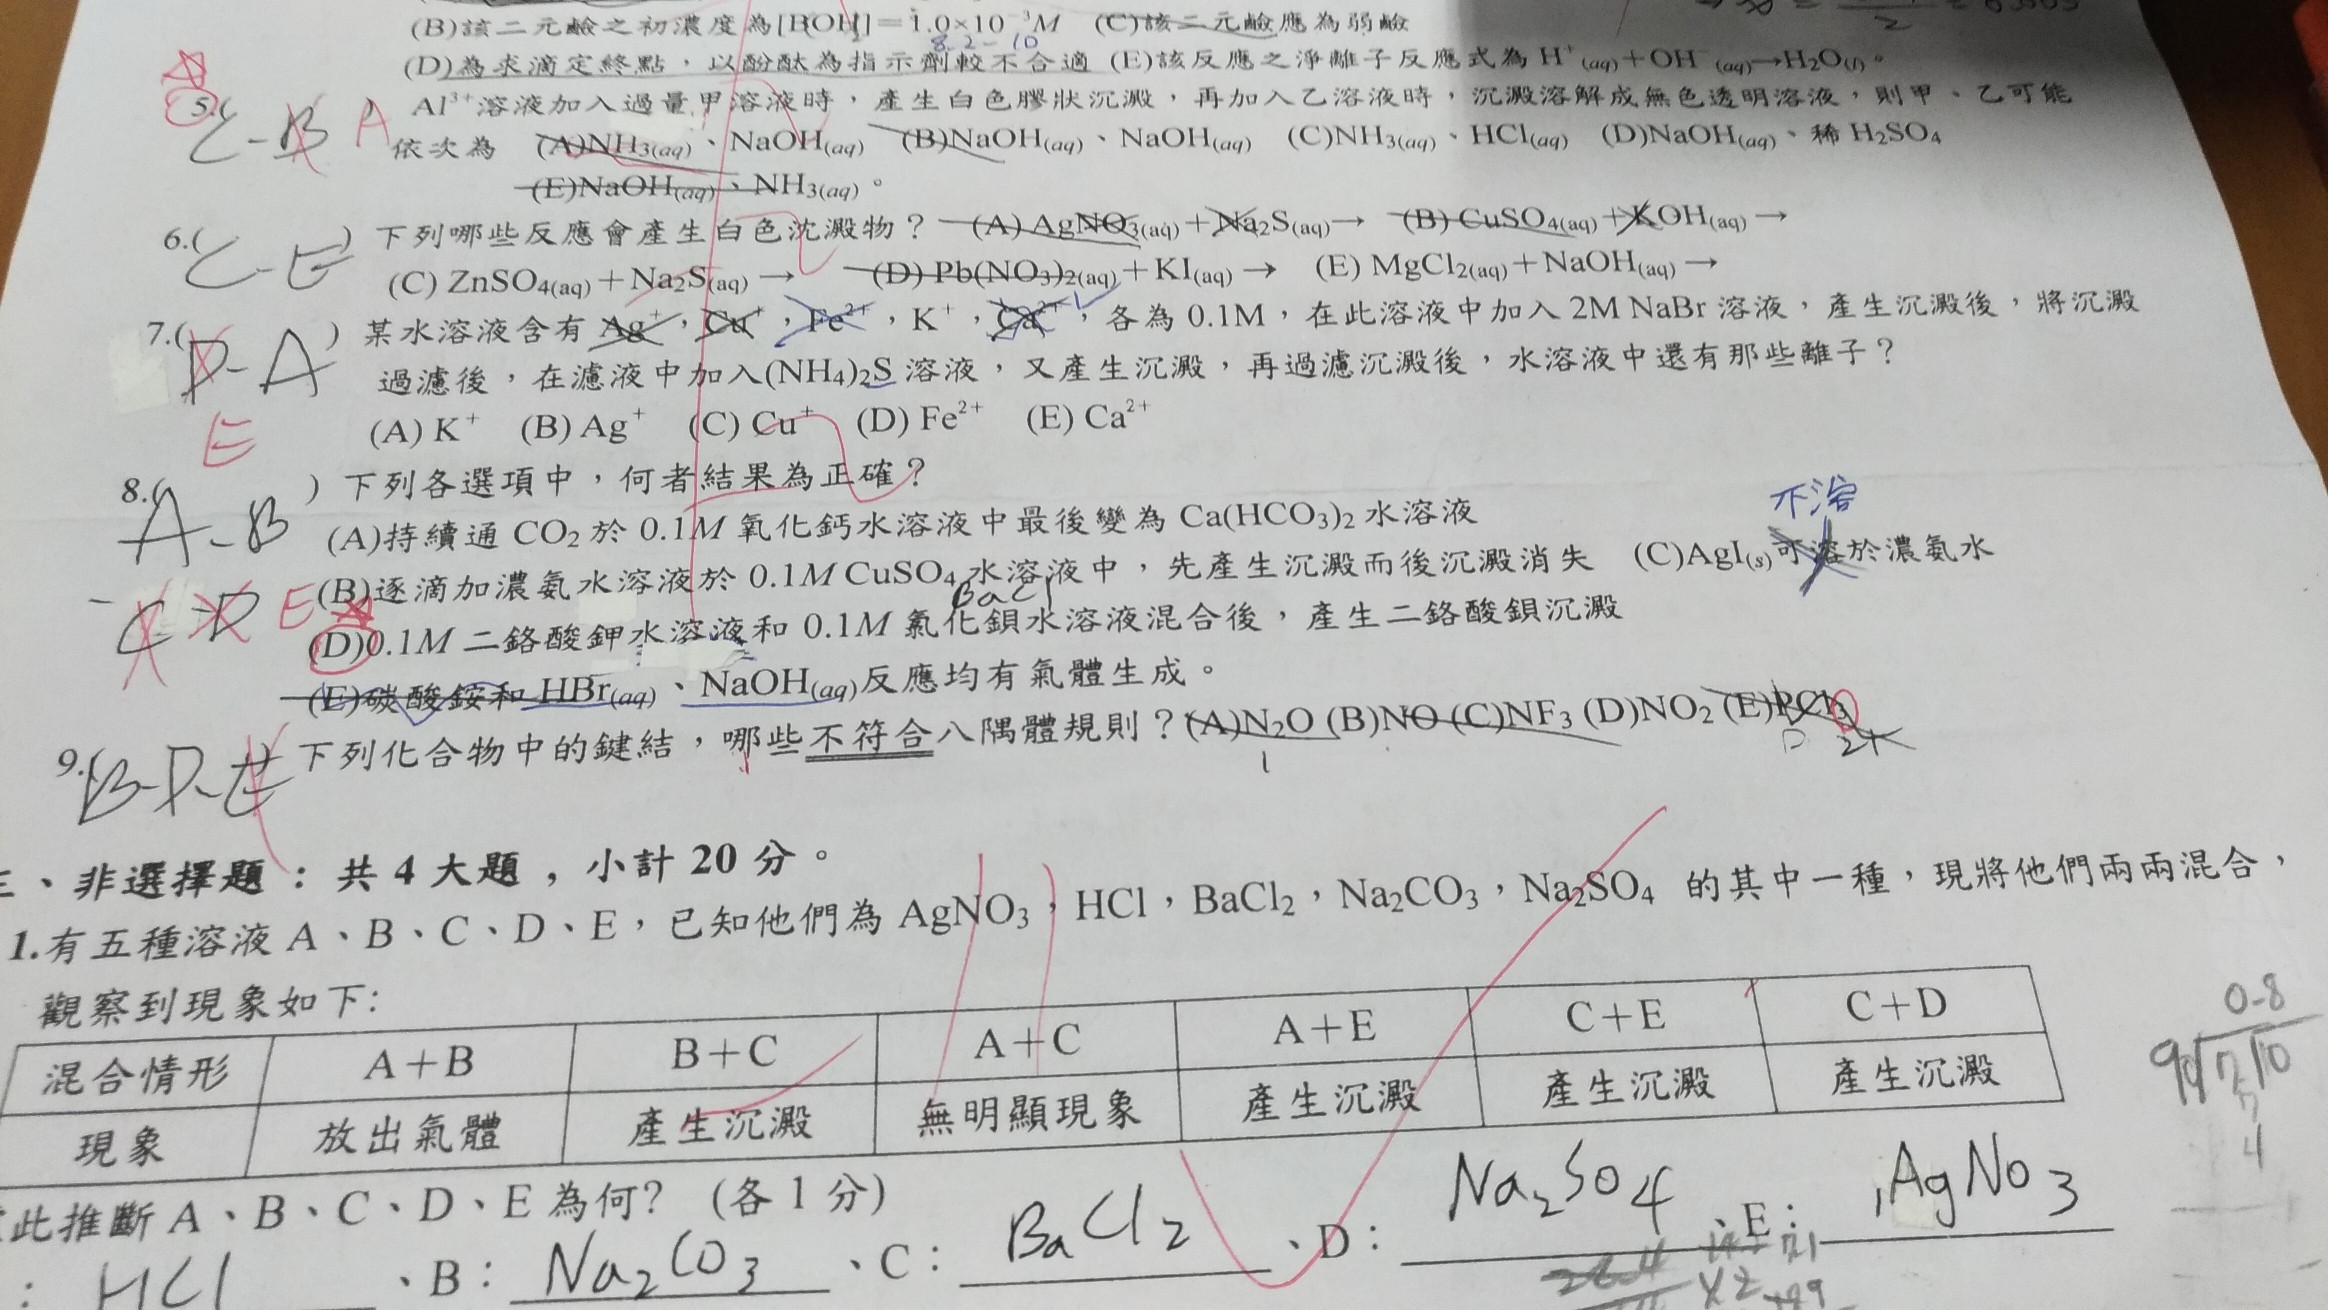 (B)該二元鹼之初濃度為[BOH]=1.0×10⁻³M (C)該二元鹼應為弱鹼
8.2-10
(D)為求滴定終點，以酚酞為指示劑較不合適 (E)該反應之淨離子反應式為 H⁺(aq)+OH⁻(aq)→H₂O(l)。
5.( C-B A ) Al³⁺溶液加入過量甲溶液時，產生白色膠狀沉澱，再加入乙溶液時，沉澱溶解成無色透明溶液，則甲、乙可能
依次為 (A)NH₃(aq)、NaOH(aq) (B)NaOH(aq)、NaOH(aq) (C)NH₃(aq)、HCl(aq) (D)NaOH(aq)、稀 H₂SO₄
(E)NaOH(aq)、NH₃(aq)。
6.( C-E ) 下列哪些反應會產生白色沈澱物？ (A) AgNO₃(aq)+Na₂S(aq)→ (B) CuSO₄(aq)+KOH(aq)→
(C) ZnSO₄(aq)+Na₂S(aq)→ (D) Pb(NO₃)₂(aq)+KI(aq)→ (E) MgCl₂(aq)+NaOH(aq)→
7.( D-A ) 某水溶液含有 Ag⁺，Cu⁺，Fe²⁺，K⁺，Ca²⁺，各為 0.1M，在此溶液中加入 2M NaBr 溶液，產生沉澱後，將沉澱
過濾後，在濾液中加入(NH₄)₂S 溶液，又產生沉澱，再過濾沉澱後，水溶液中還有那些離子？
E
(A) K⁺ (B) Ag⁺ (C) Cu⁺ (D) Fe²⁺ (E) Ca²⁺
8.( A-B ) 下列各選項中，何者結果為正確？
不溶
(A)持續通 CO₂ 於 0.1M 氧化鈣水溶液中最後變為 Ca(HCO₃)₂ 水溶液
(B)逐滴加濃氨水溶液於 0.1M CuSO₄ 水溶液中，先產生沉澱而後沉澱消失 (C)AgI(s)可溶於濃氨水
- C D E
(D)0.1M 二鉻酸鉀水溶液和 0.1M 氯化鋇水溶液混合後，產生二鉻酸鋇沉澱
(E)碳酸銨和 HBr(aq)、NaOH(aq)反應均有氣體生成。
9.( B-D-E ) 下列化合物中的鍵結，哪些不符合八隅體規則？(A)N₂O (B)NO (C)NF₃ (D)NO₂ (E)PCl₃
、非選擇題：共 4 大題，小計 20 分。
1.有五種溶液 A、B、C、D、E，已知他們為 AgNO₃，HCl，BaCl₂，Na₂CO₃，Na₂SO₄ 的其中一種，現將他們兩兩混合，
觀察到現象如下:
混合情形 A+B B+C A+C A+E C+E C+D
現象 放出氣體 產生沉澱 無明顯現象 產生沉澱 產生沉澱 產生沉澱
此推斷 A、B、C、D、E 為何? (各 1 分)
: HCl 、B: Na₂CO₃ 、C: BaCl₂ 、D: Na₂SO₄ 、E: AgNO₃